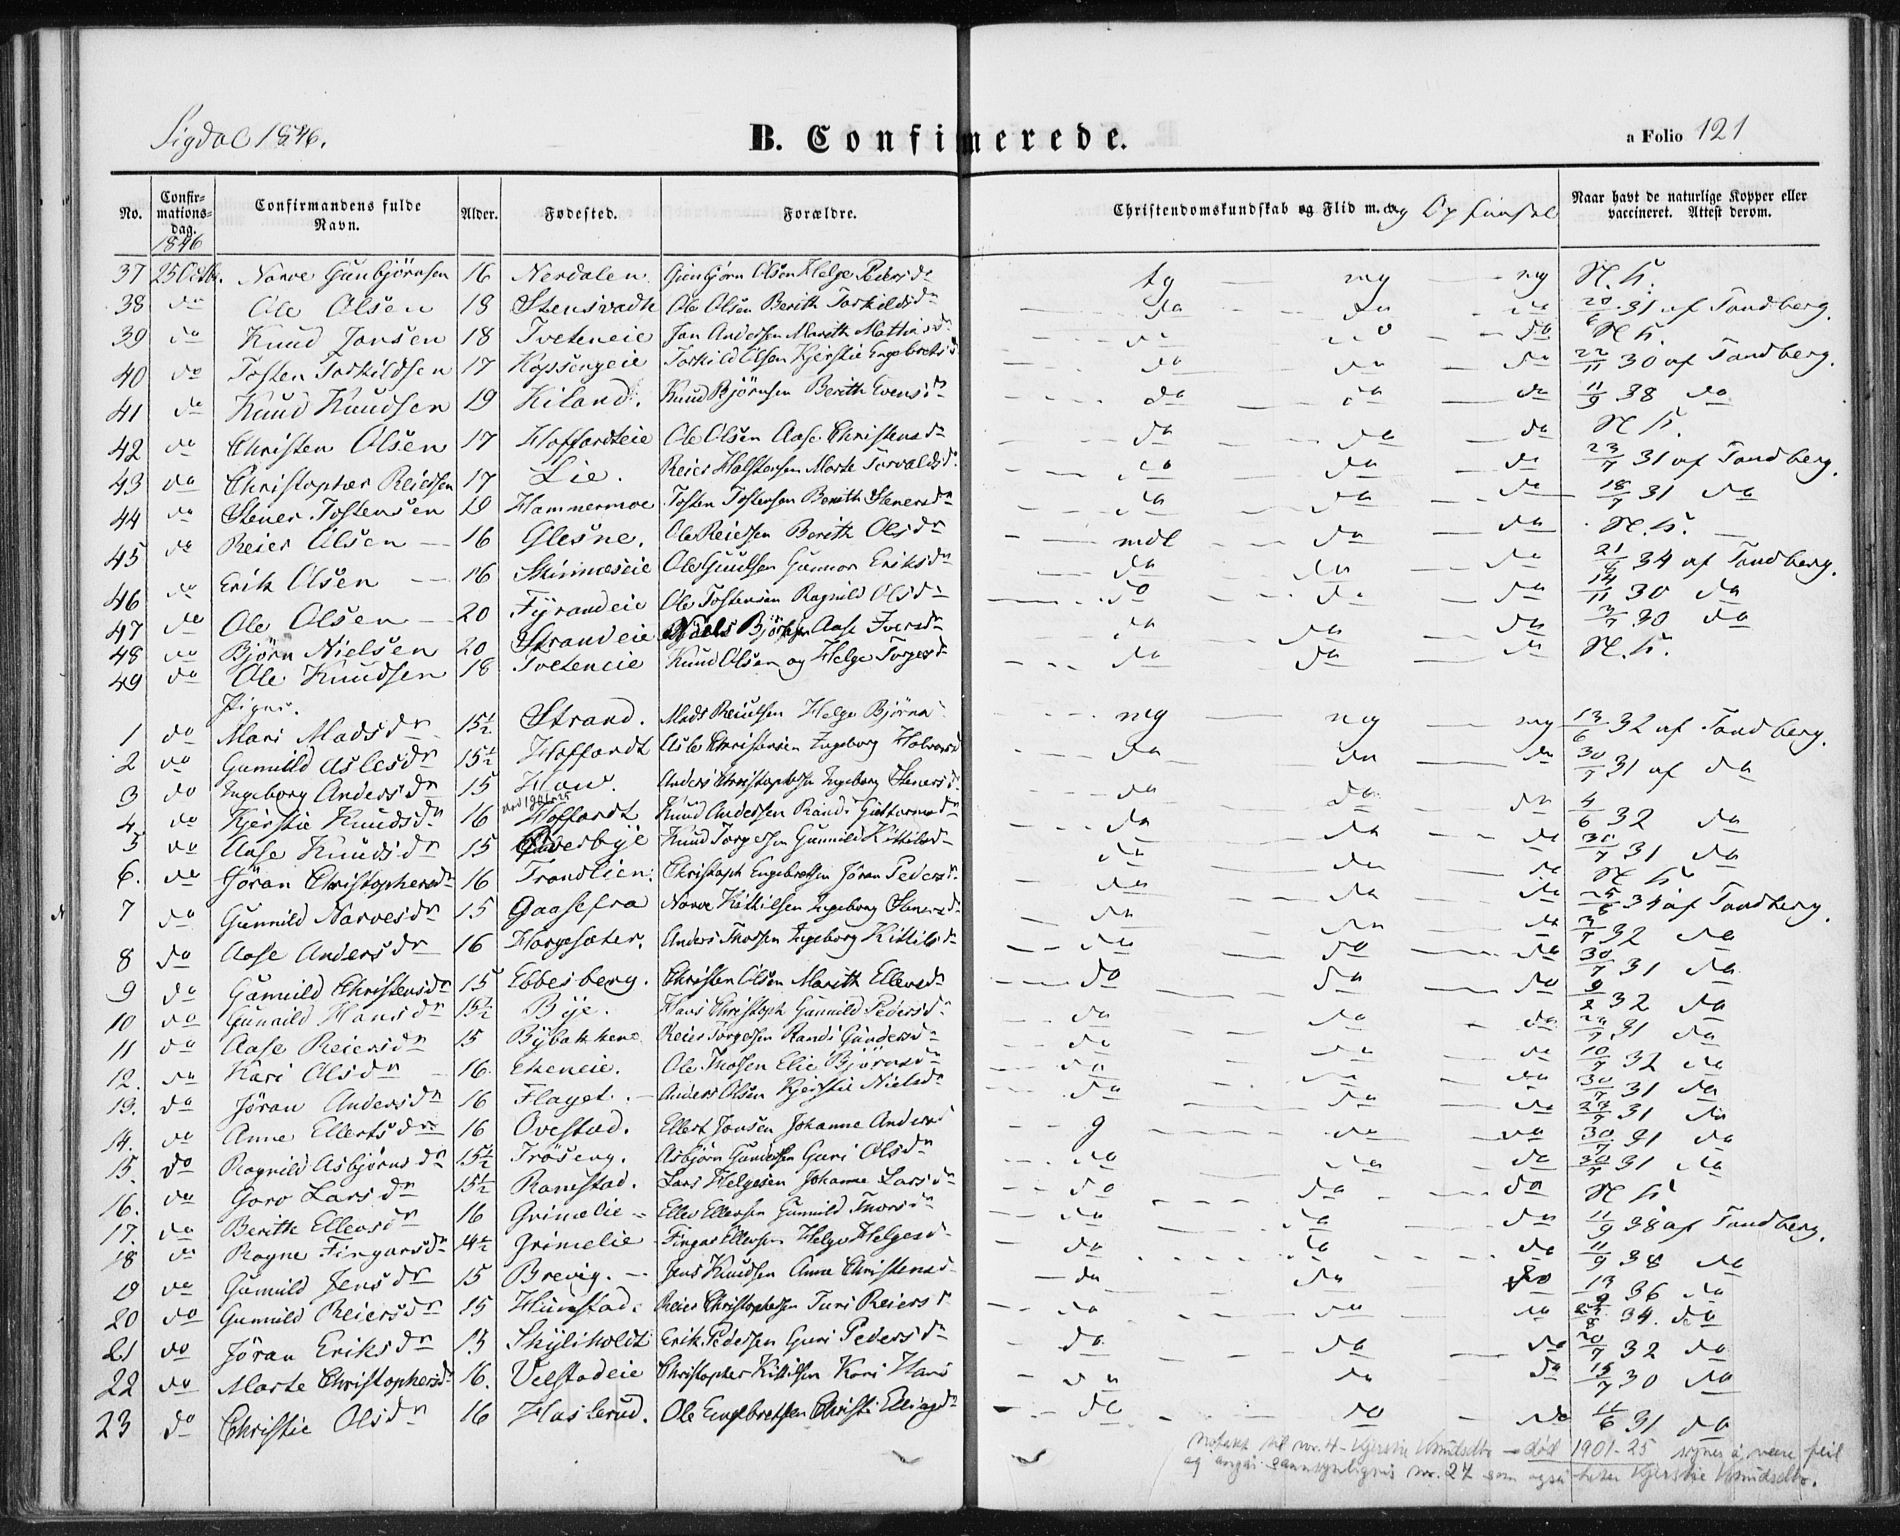 Sigdal 1846.
B. Confimerede.
a Folio 121
No.
Confir-
mations-
dag.
1846
Confirmandens fulde
Navn.
Alder.
Fødested.
Forældre.
Christendomskundskab og Flid m. v. og Opførsel
Naar havt de naturlige Kopper eller
vaccineret. Attest derom.
37 25 Octb. Narve Gunbjørnsen 16 Nerdalen Gunbjørn Olsen Helge Peders dr tg mg mg N. K.
38 do Ole Olsen 18 Ole Olsen Berith Torkildsdr do do do 20/6 31 af Tandberg.
39 do Knud Jonsen 18 Tveteneie Jon Andersen Marith Mathiasdr do do do N. K.
40 do Tosten Torkildsen 17 Kopsengeie Torkild Olsen Kjerstie Engebretsd do do do 22/11 30 af Tandberg.
41 do Knud Knudsen 19 Kiland. Knud Bjørnsen Berith Evensdr do do do 11/9 38 do
42 do Christen Olsen 17 Hoffardteie Ole Olsen Aase Christensdr do do do N. K.
43 do Christopher Reiersen 17 Lie. Reier Halstensen Marte Torvaldsd. do do do 23/7 31 af Tandberg.
44 do Stener Tostensen 19 Hammermoe Tosten Tostensen Berith Stenersdr do do do 18/7 31 do
45 do Reier Olsen 16 Glesne. Ole Reiersen Berith Olsdr mdl do do N. K.
46 do Erik Olsen 16 Skinneseie Ole Gunnor Eriksdr do do do 21/6 34 af Tandberg.
47 do Ole Olsen 20 Fyrandeie Ole Tostensen Ragnild Olsdr do do do 14/11 30 do
48 do Bjørn Nielsen 20 Strandeie Niels Bjørnsen Aase Iversdr do do do 3/7 30 do
49 do Ole Knudsen 18 Tveteneie Knud Olsen og Helge Torgersdr do do do N. K.
Piger.
1 do Mari Madsdr 15½ Strand. Mads Helge Bjørns mg mg mg 13/6 32 af Tandberg.
2 do Gunnild Aslesdr 15½ Hoffardt Asle Christensen Ingeborg Halvorsd do do do 30/7 31 af do
3 do Ingeborg Andersdr 15 Anders Christophersen Ingeborg Stenersd. do do do 4/6 32 do
død 1901-25
4 do Kjerstie Knudsdr 16 Hoffardt Knud Andersen Randi Guttormsdr do do do 31/7 31 do
5 do Aase Knudsdr 15 Knud Torgersen Gunnild Kittilsdr do do do N. K.
6. do Jøran Christophersdr 16 Trondlien. Christoph Engebretsen Jøran Pedersdr do do do 25/6 34 af Tandberg.
7 do Gunnild Narvesdr 15 Gaasefra Narve Kittilsen Ingeborg Stenersdr do do do 3/7 32 do
8 do Aase Andersdr 16 Horgesæter. Anders Thorsen Ingeborg Kittilsdr do do do 30/7 31 do
9 do Gunnild Christensdr 15 Ebbesberg. Christen Olsen Marith Ellersdr do do do 9/2 32 do
10 do Gunnild Hansdr 15½ Bye. Hans Christoph Gunnild Pedersdr do do do 31 do
11 do Aase Reiersdr 15 Bybakkene Reier Torgersen Randi Gundersdr do do do 10/7 32 do
12. do Kari Olsdr 16. Ekeneie. Ole Thorsen Elie Bjørnsdr do do do 30/7 31 do
13. do Jøran Andersdr 16 Flaget. Anders Olsen Kjerstie Nielsdr do do do 23/7 31 do
14. do Anne Ellertsdr 16 Ovestad. Ellert Jonsen Johanne Andersd g do do 30/7 31 do
15. do Ragnild Asbjørnsdr 15½ Frøseng. Asbjørn Gundersen Guri Olsdr do do do 30/7 31 do
16. do Goro Larsdr 15½ Ramstad. Lars Helgesen Johanne Larsdr do do do N. K.
17. do Berith Ellersdr 16 Grimelie Eller Ellersen Gunnild Thorsdr do do do 11/9 38 af Tandberg.
18 do Ragne Fingarsdr 14½ Grimelie Fingar Ellersen Helge Helgesd do do do 11/9 38 do
19 do Gunnild Jensdr 15 Brevig. Jens Knudsen Anne Christensd do do do 13/9 36 do
20 do Gunnild Reiersdr 15 Reier Christophersen Turi Reiersdr do do do 34. do
21 do Jøran Eriksdr 15 Erik Pedersen Guri Pedersdr do do do 20/7 32 do
22 do Marte Christophersdr 16. Velstadeie Christopher Kittilsen Kari Hans do do do 15/7 30 do
23 do Christie Olsdr 16 Haslerud. Ole Engebretsen Christi Ellingdr do do do 11/6 31 do
Notatet til nr. 4 - Kjerstie Knudsdtr - død 1901-25 synes å være feil
og angår sannsynligvis nr. 27 som også heter Kjerstie Knudsdtr.